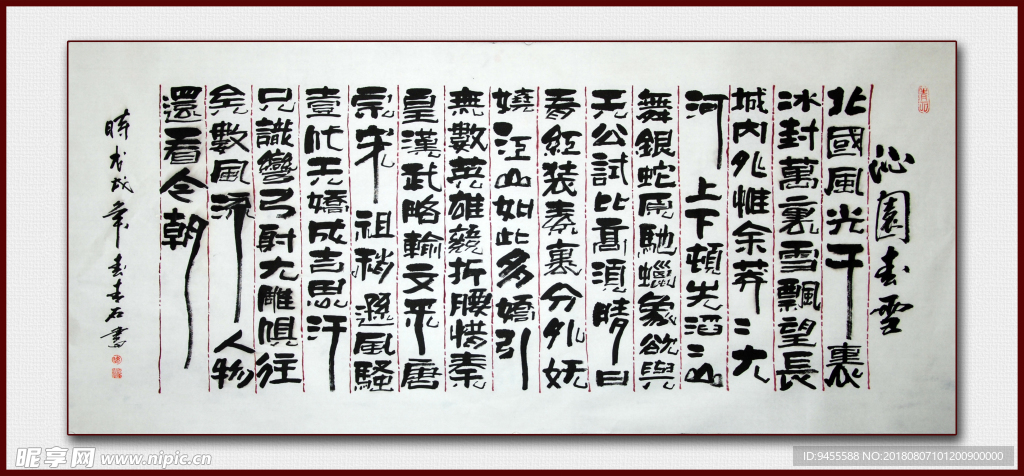 沁園春雪
北國風光千裏
冰封萬裏雪飄望長
城內外惟余莽〻大
河上下頓失滔〻山
舞銀蛇原馳蠟象欲與
天公試比高須晴日
看紅裝素裹分外妖
嬈江山如此多嬌引
無數英雄競折腰惜秦
皇漢武略輸文采唐
宗宋祖稍遜風騷
壹代天嬌成吉思汗
只識彎弓射大雕俱往
矣數風流人物
還看今朝
時戊戌年春春石書
昵享网 www.nipic.cn
ID:9455588 NO:20180807101200900000